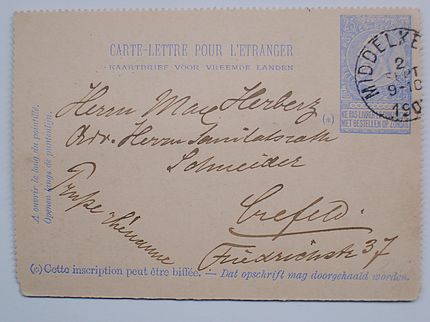 CARTE-LETTRE POUR L'ETRANGER
KAARTBRIEF VOOR VREEMDE LANDEN
MIDDELKE
2
SEPT
9-10
190
NE PAS LIVRER
NIET BESTELLEN OP ZONDAG
Herrn Max Herberz
(*)
Adr. Herrn Sanitätsrath
Schneider
Crefeld.
Friedrichstr. 37
A ouvrir le long du pointillé.
Openen langs de puntenlijn.
(*) Cette inscription peut être biffée. — Dat opschrift mag doorgehaald worden.